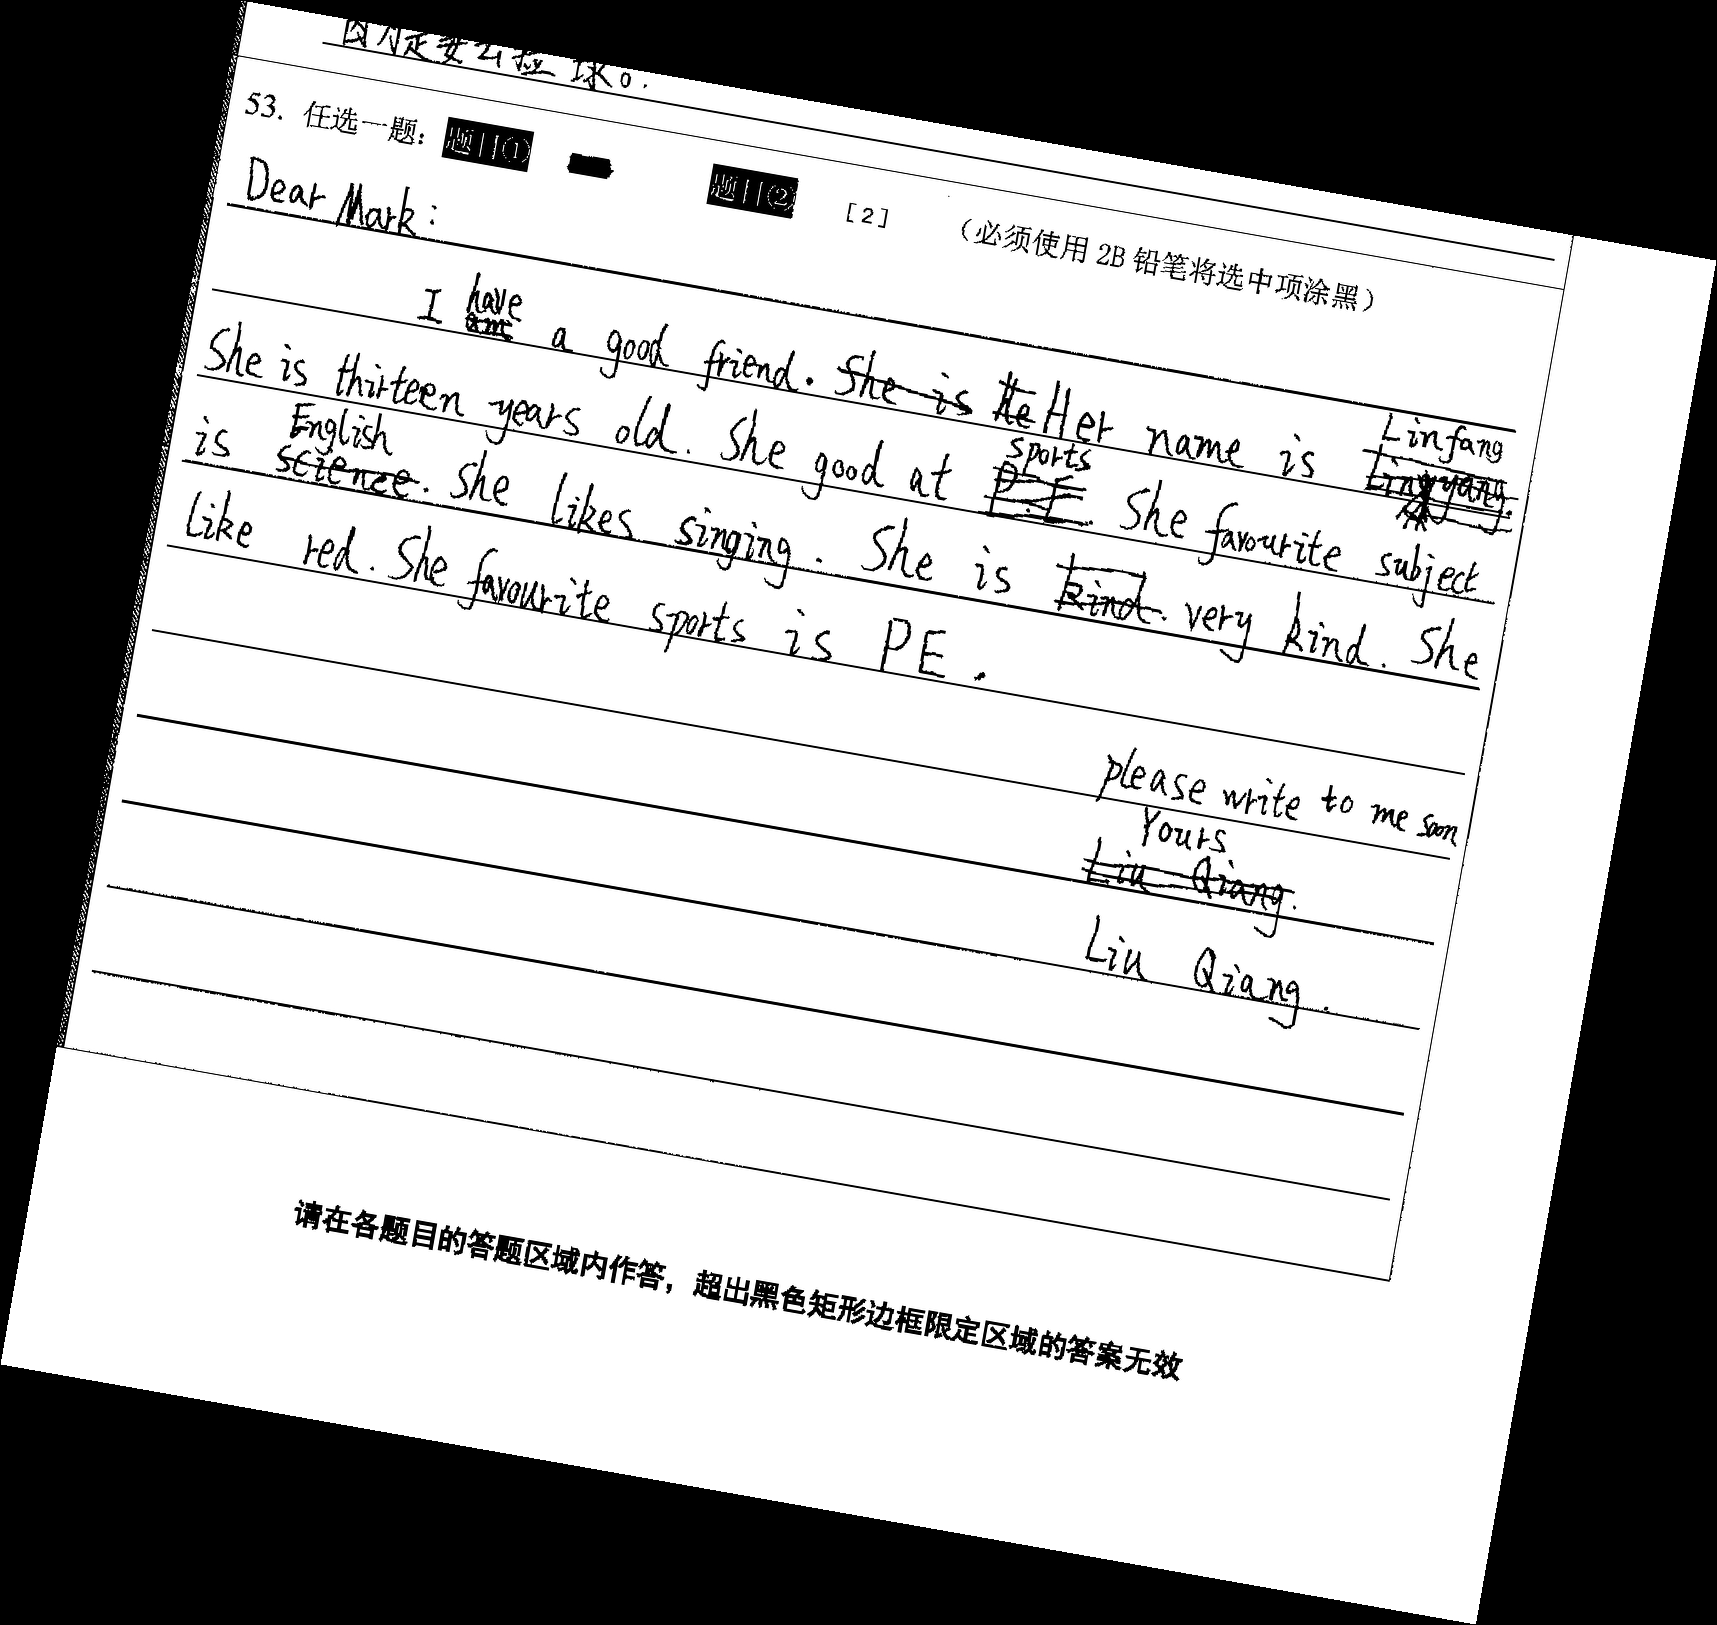 因为是要去捡球。
53. 任选一题: 题目① 题目② [2] (必须使用 2B 铅笔将选中项涂黑)
Dear Mark:
I have a good friend. Her name is Linfang
She is thirteen years old. She good at sports She favourite subject
is English She likes singing. She is very kind. She
like red. She favourite sports is PE.
please write to me soon
Yours
Liu Qiang.
请在各题目的答题区域内作答，超出黑色矩形边框限定区域的答案无效